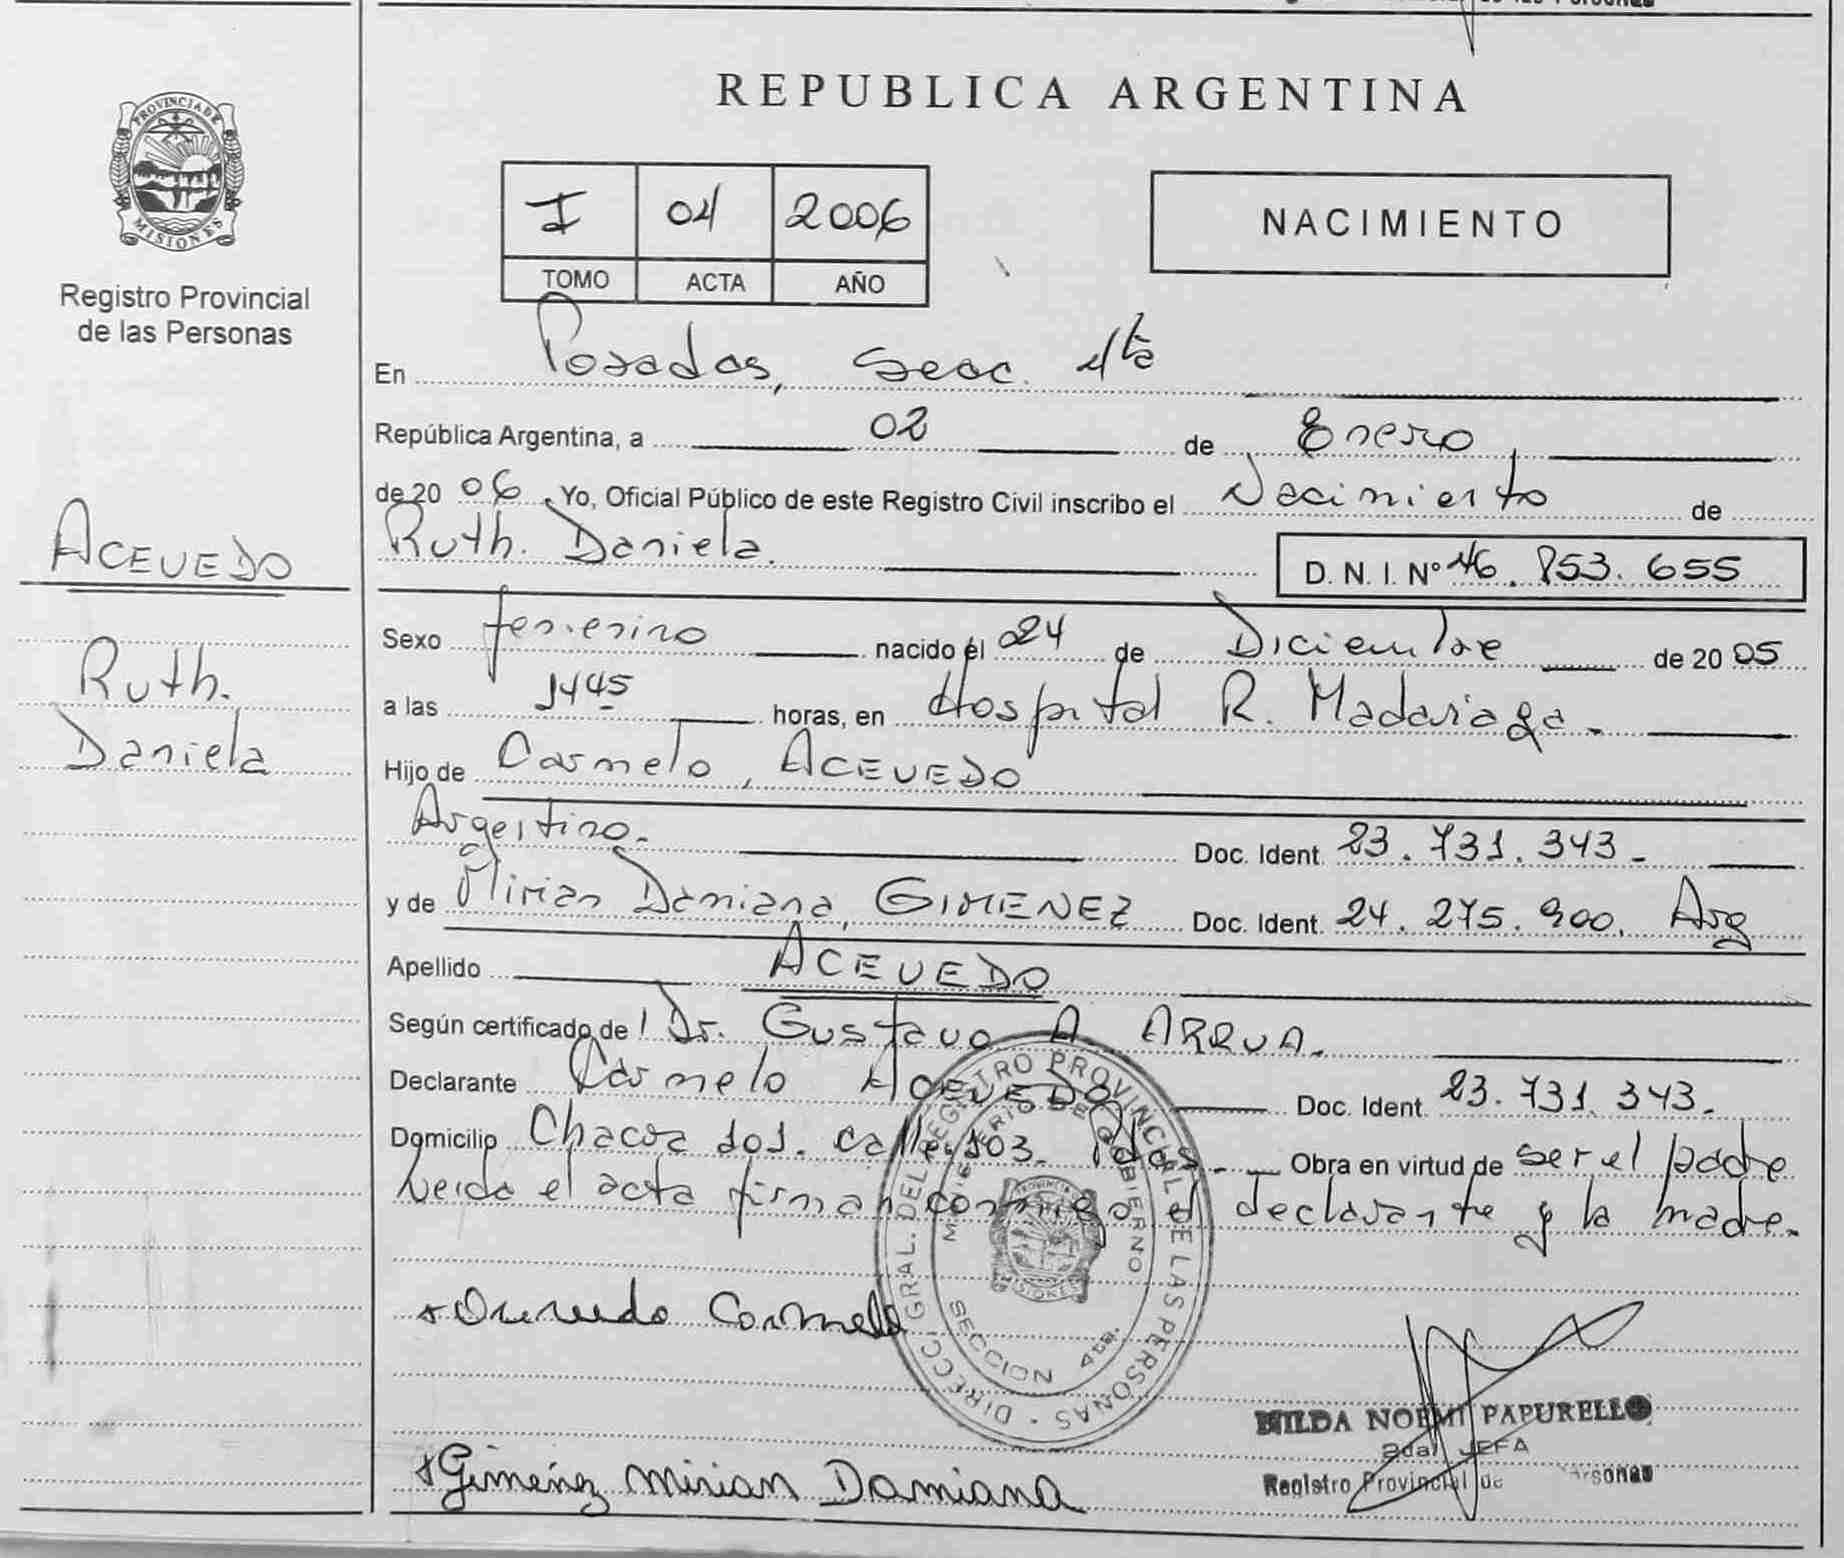 REPUBLICA ARGENTINA
PROVINCIA DE
MISIONES
Registro Provincial
de las Personas
I 04 2006
TOMO ACTA AÑO
NACIMIENTO
En Posadas, Secc. 4ta
República Argentina, a 02 de Enero
de 20 06. Yo, Oficial Público de este Registro Civil inscribo el Nacimiento de
Ruth. Daniela.
D. N. I. Nº 46. 853. 655
ACEVEDO
Ruth.
Daniela
Sexo femenino nacido el 24 de Diciembre de 20 05
a las 1445 horas, en Hospital R. Madariaga.
Hijo de Carmelo, ACEVEDO
Argentino. Doc. Ident. 23. 731. 343.
y de Mirian Damiana, GIMENEZ Doc. Ident. 24. 275. 900. Arg
Apellido ACEVEDO
Según certificado de Dr. Gustavo A. ARRUA.
Declarante Carmelo ACEVEDO Doc. Ident. 23. 731. 343.
Domicilio Chacra 101. calle 103. Pdas. Obra en virtud de ser el padre
Leida el acta firman conmigo el declarante y la madre.
DIRECC. GRAL. DEL REGISTRO PROVINCIAL DE LAS PERSONAS
MINISTERIO DE GOBIERNO
SECCION 4ta.
Carmelo
Gimenez Mirian Damiana
HILDA NOEMI PAPURELLO
2da. JEFA
Registro Provincial de Personas